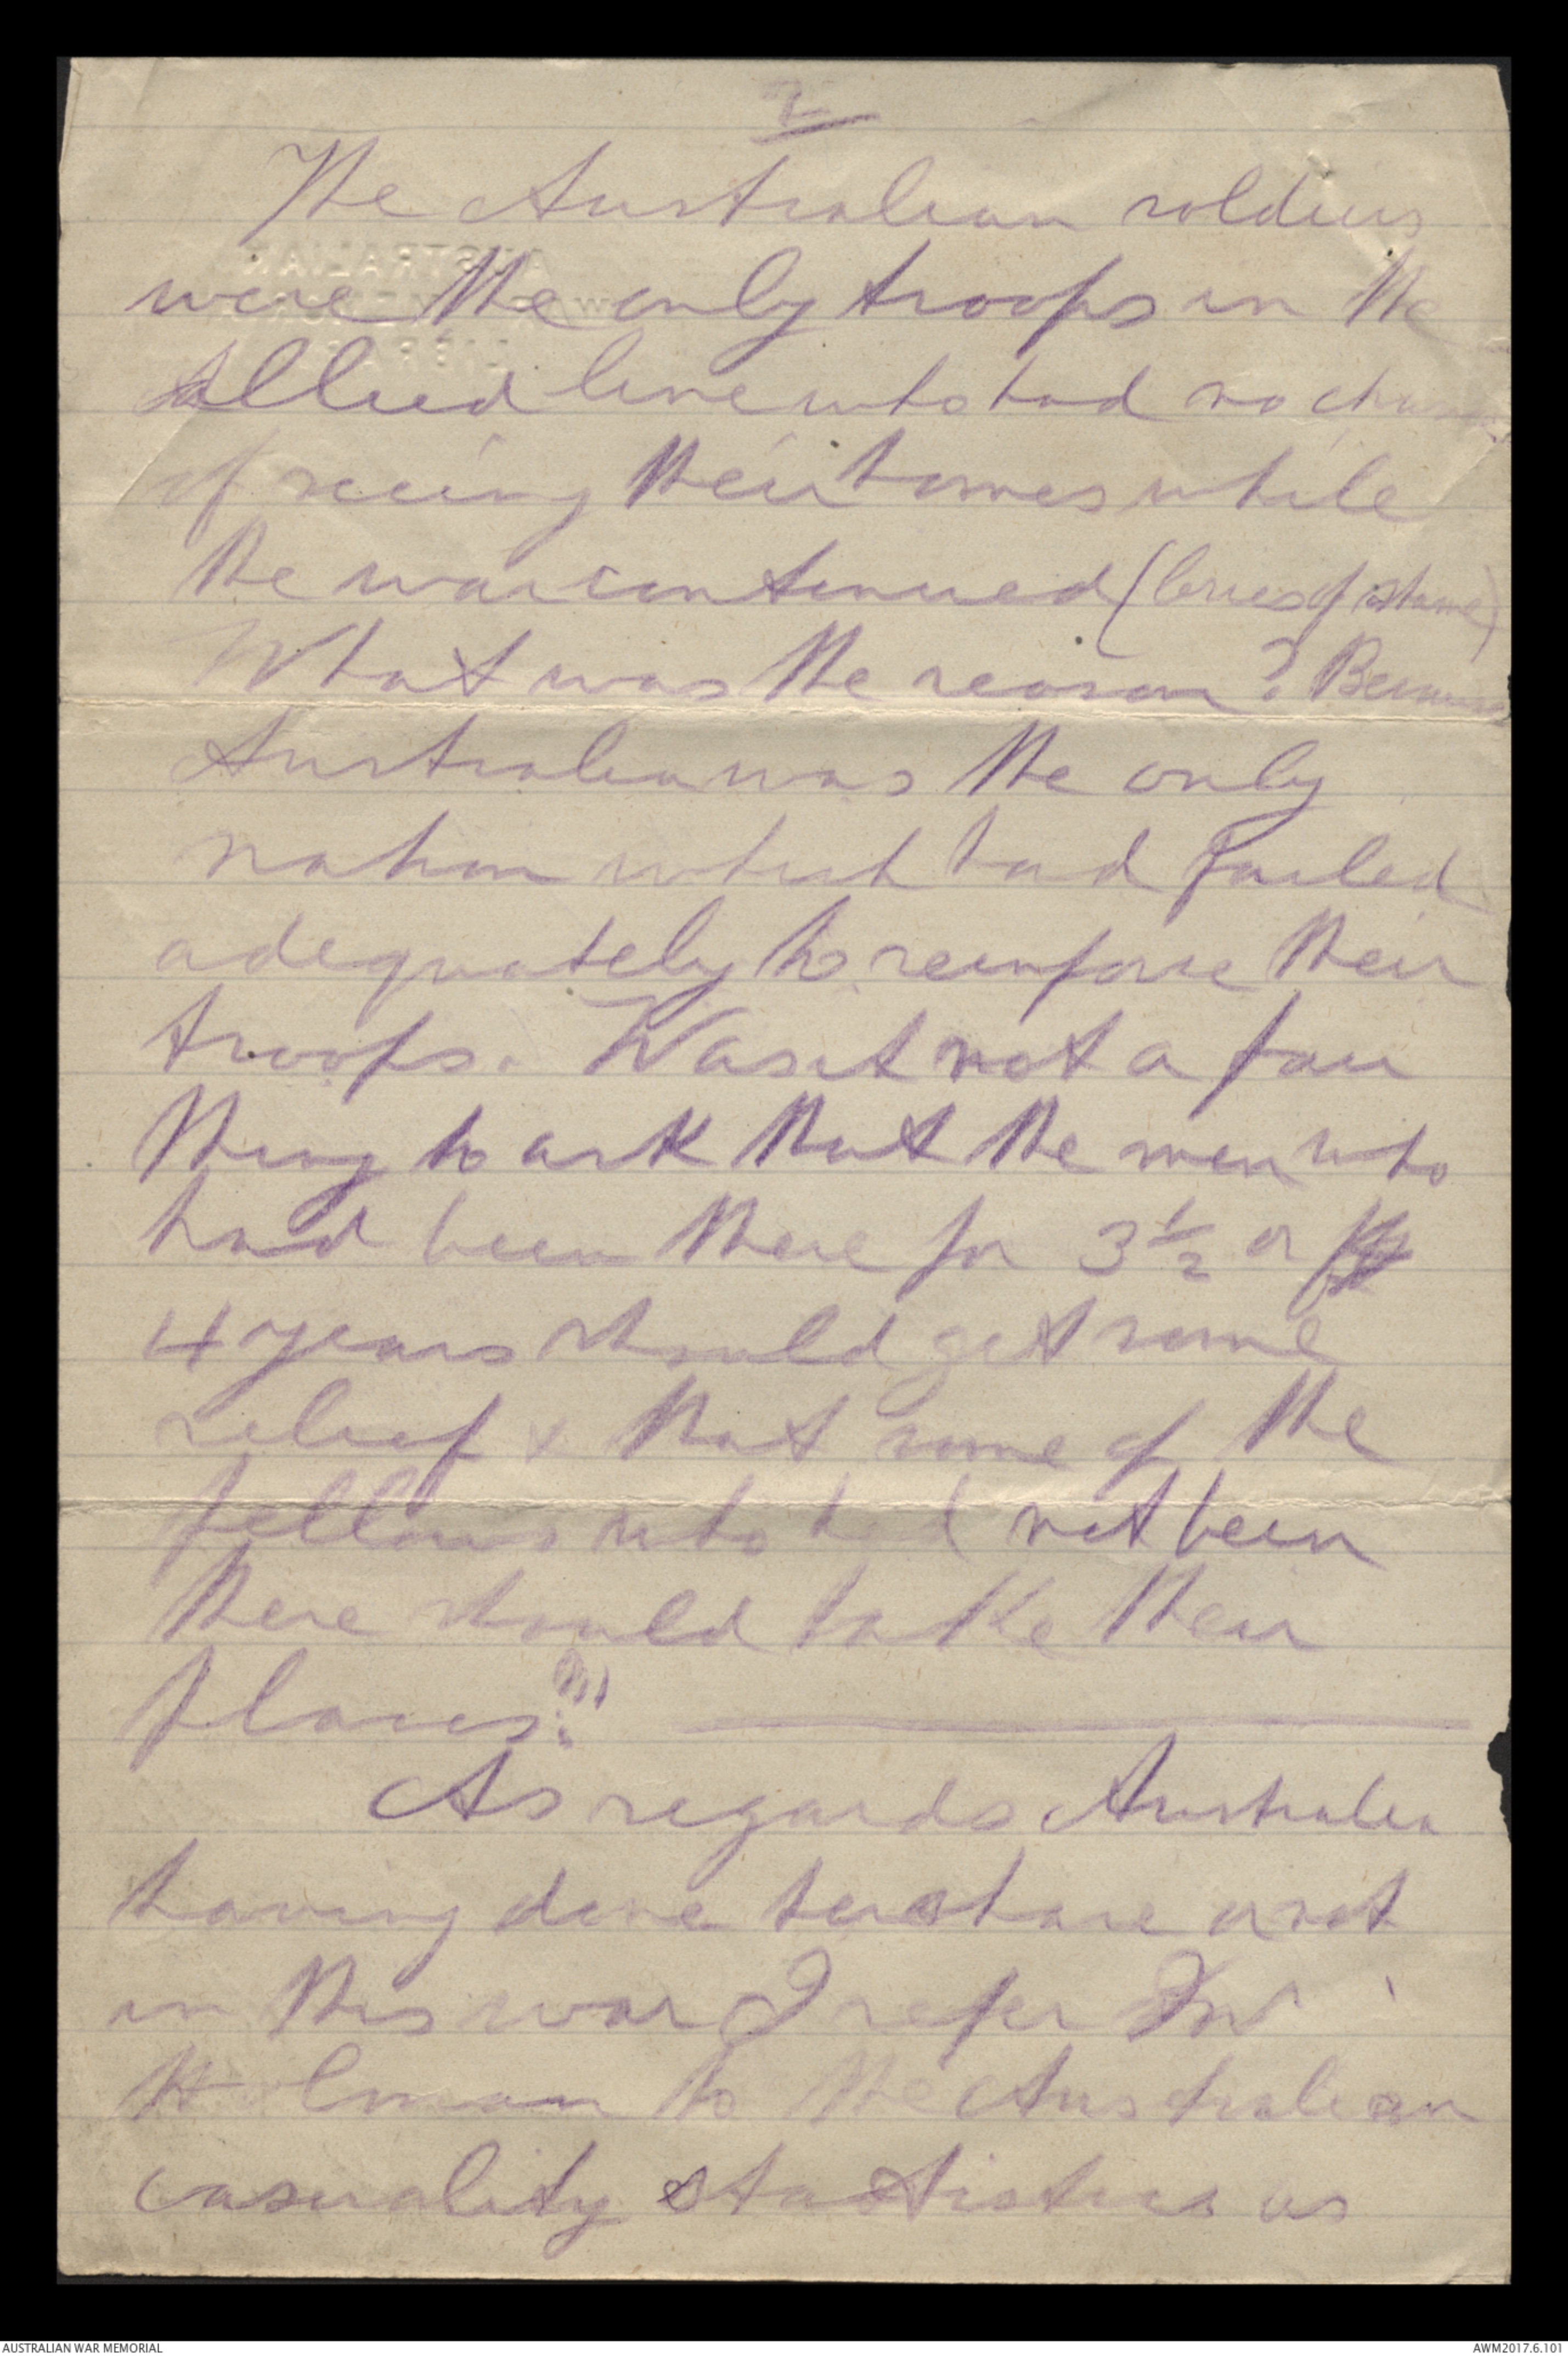 2
The Australian soldiers
were the only troops in the
allied line who had no chance
of seeing their homes while
the war continued (Cries of shame)
What was the reason? Because
Australia was the only
nation which had failed
adequately to reinforce their
troops. Was it not a fair
thing to ask that the men who
had been there for 3½ or
4 years should get some
relief & that some of the
fellows who had not been
there should take their
places?!!!
As regards Australia
having done her share or not
in this war I refer Mr
Holman to the Australian
casuality statistics as
AUSTRALIAN WAR MEMORIAL
AWM2017.6.101